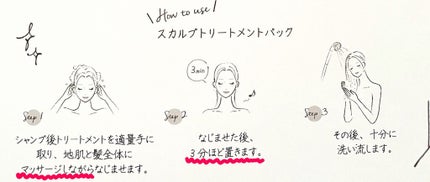 How to use
スカルプトリートメントパック
Step 1
シャンプ後トリートメントを適量手に
取り、地肌と髪全体に
マッサージしながらなじませます。
3min
Step 2
なじませた後、
3分ほど置きます。
Step 3
その後、十分に
洗い流します。